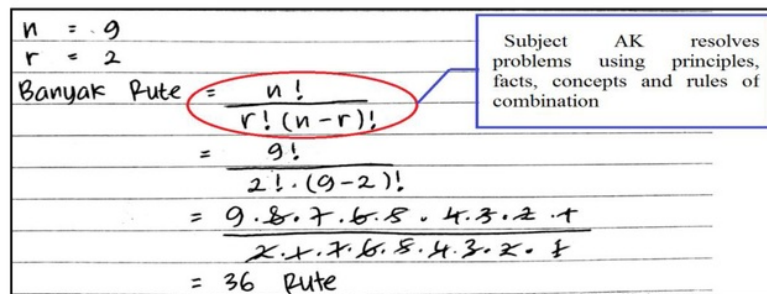 n = 9
r = 2
Banyak Rute = n!
r! (n-r)!
= 9!
2! . (9-2)!
= 9.8.7.6.5.4.3.2.1
2.1.7.6.5.4.3.2.1
= 36 Rute
Subject AK resolves
problems using principles,
facts, concepts and rules of
combination